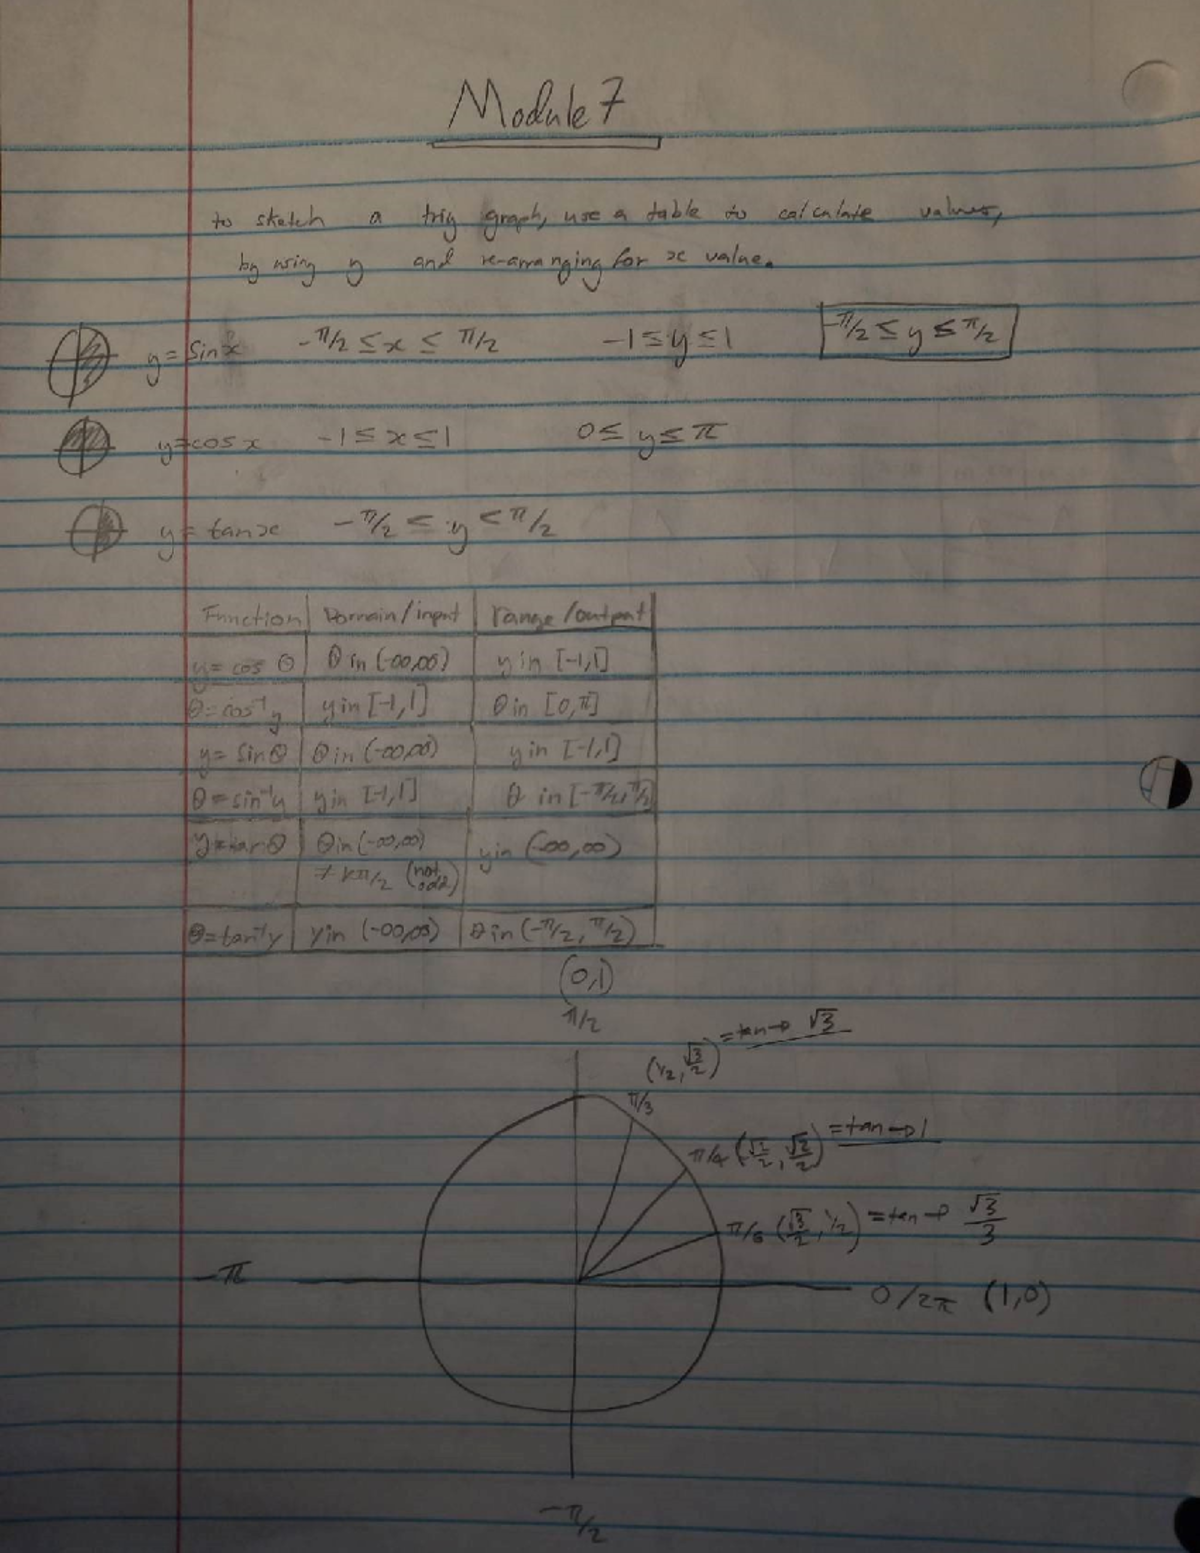 Module 7
to sketch a trig graph, use a table to calculate values,
by using y and re-arranging for x value.
y = sin x -π/2 ≤ x ≤ π/2 -1 ≤ y ≤ 1 -π/2 ≤ y ≤ π/2
y = cos x -1 ≤ x ≤ 1 0 ≤ y ≤ π
y = tan x -π/2 ≤ y < π/2
Function Domain/input range/output
y = cos θ θ in (-∞,∞) y in [-1,1]
θ = cos⁻¹y y in [-1,1] θ in [0,π]
y = sin θ θ in (-∞,∞) y in [-1,1]
θ = sin⁻¹y y in [-1,1] θ in [-π/2,π/2]
y = tan θ θ in (-∞,∞) y in (-∞,∞)
≠ kπ/2 (not odd)
θ = tan⁻¹y y in (-∞,∞) θ in (-π/2, π/2)
(0,1)
π/2
(1/2, √3/2) = tan → √3
π/3
π/4 (√2/2, √2/2) = tan → 1
π/6 (√3/2, 1/2) = tan → √3/3
-π 0/2π (1,0)
-π/2